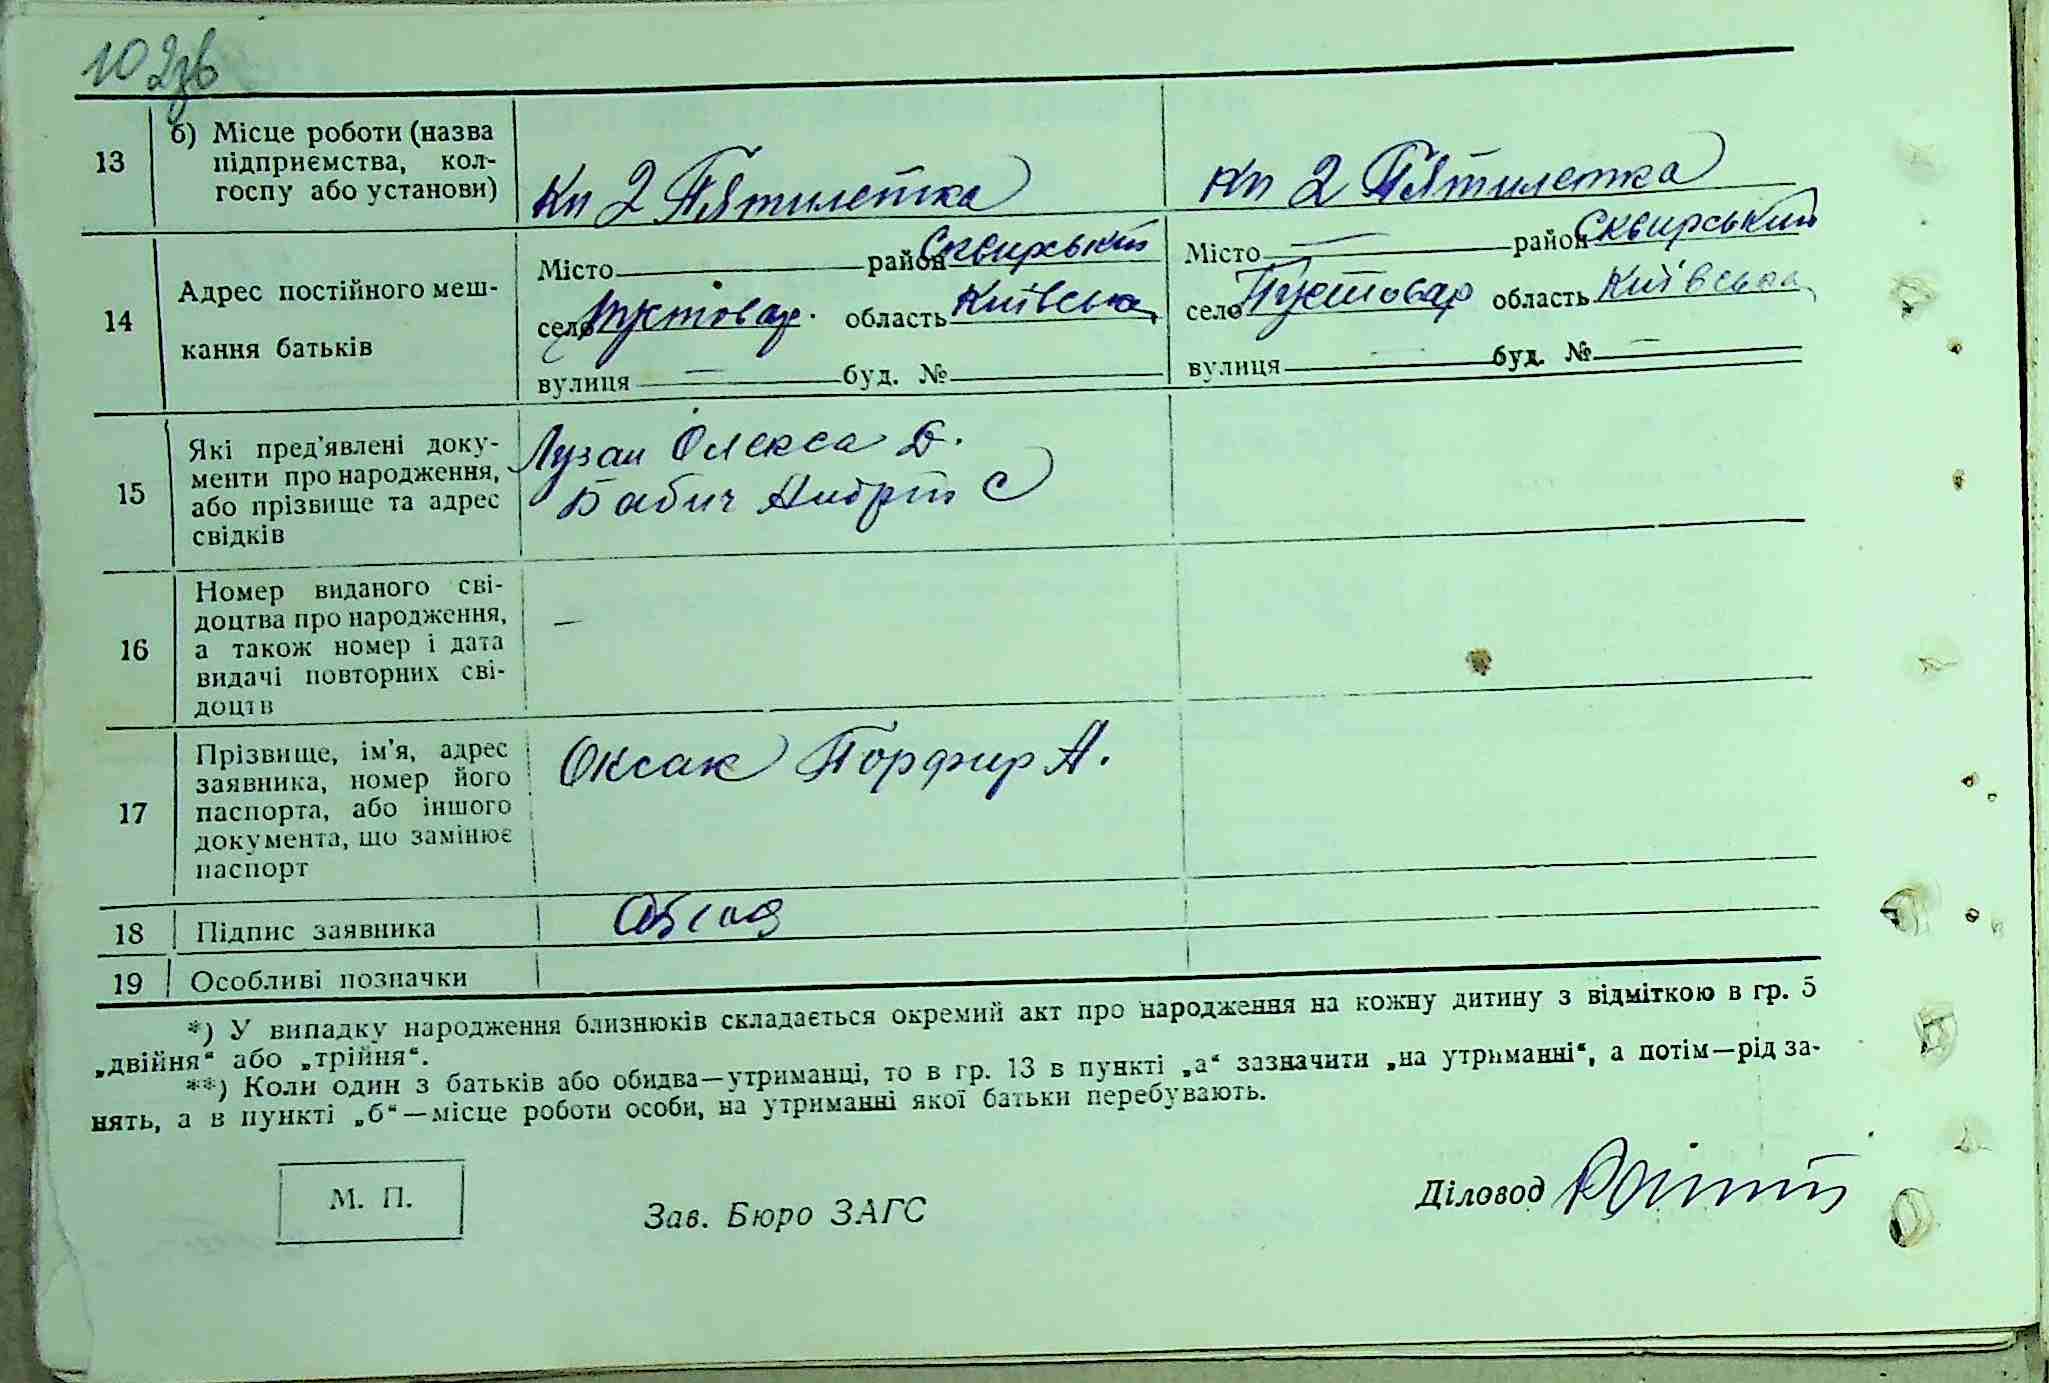 102зв
13
б) Місце роботи (назва
підприємства, кол-
госпу або установи)
Кп 2 Пятилетка
Кп 2 Пятилетка
14
Адрес постійного меш-
кання батьків
Місто — район Сквирський
село Пустовар. область Київська
вулиця — буд. №
Місто — район Сквирський
село Пустовар область Київська
вулиця — буд. № —
15
Які пред'явлені доку-
менти про народження,
або прізвище та адрес
свідків
Лузан Олекса Д.
Бабич Андрій С
16
Номер виданого сві-
доцтва про народження,
а також номер і дата
видачі повторних сві-
доцтв
—
17
Прізвище, ім'я, адрес
заявника, номер його
паспорта, або іншого
документа, що замінює
паспорт
Оксак Порфир А.
18
Підпис заявника
19
Особливі позначки
*) У випадку народження близнюків складається окремий акт про народження на кожну дитину з відміткою в гр. 5
„двійня“ або „трійня“.
**) Коли один з батьків або обидва—утриманці, то в гр. 13 в пункті „а“ зазначити „на утриманні“, а потім—рід за-
нять, а в пункті „б“—місце роботи особи, на утриманні якої батьки перебувають.
М. П.
Зав. Бюро ЗАГС
Діловод